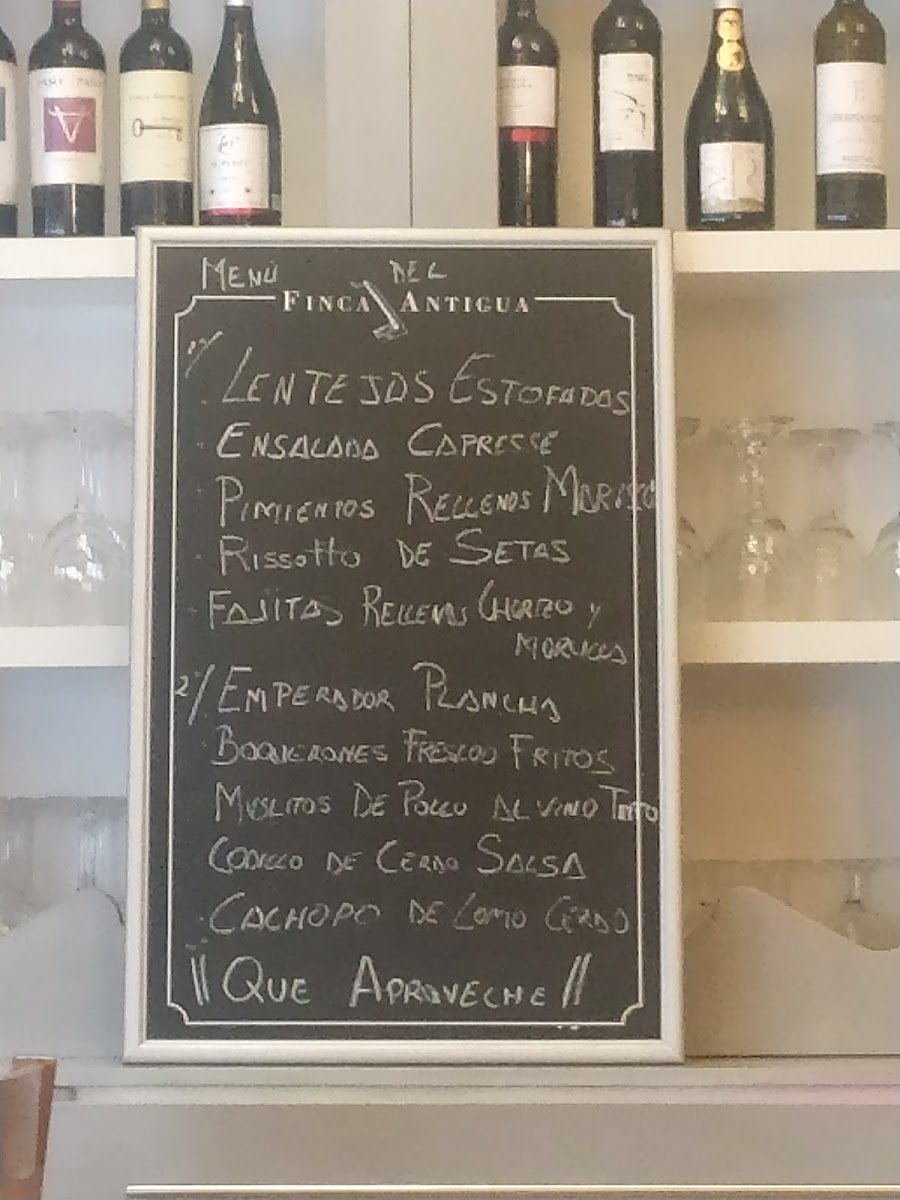 MENÚ DEL
FINCA ANTIGUA
LENTEJAS ESTOFADAS
ENSALADA CAPRESSE
PIMIENTOS RELLENOS MARISCO
RISSOTTO DE SETAS
FAJITAS RELLENAS CHORIZO Y
MORCILLA
2º/ EMPERADOR PLANCHA
BOQUERONES FRESCOS FRITOS
MUSLITOS DE POLLO AL VINO TINTO
CODILLO DE CERDO SALSA
CACHOPO DE LOMO CERDO
¡¡QUE APROVECHE!!